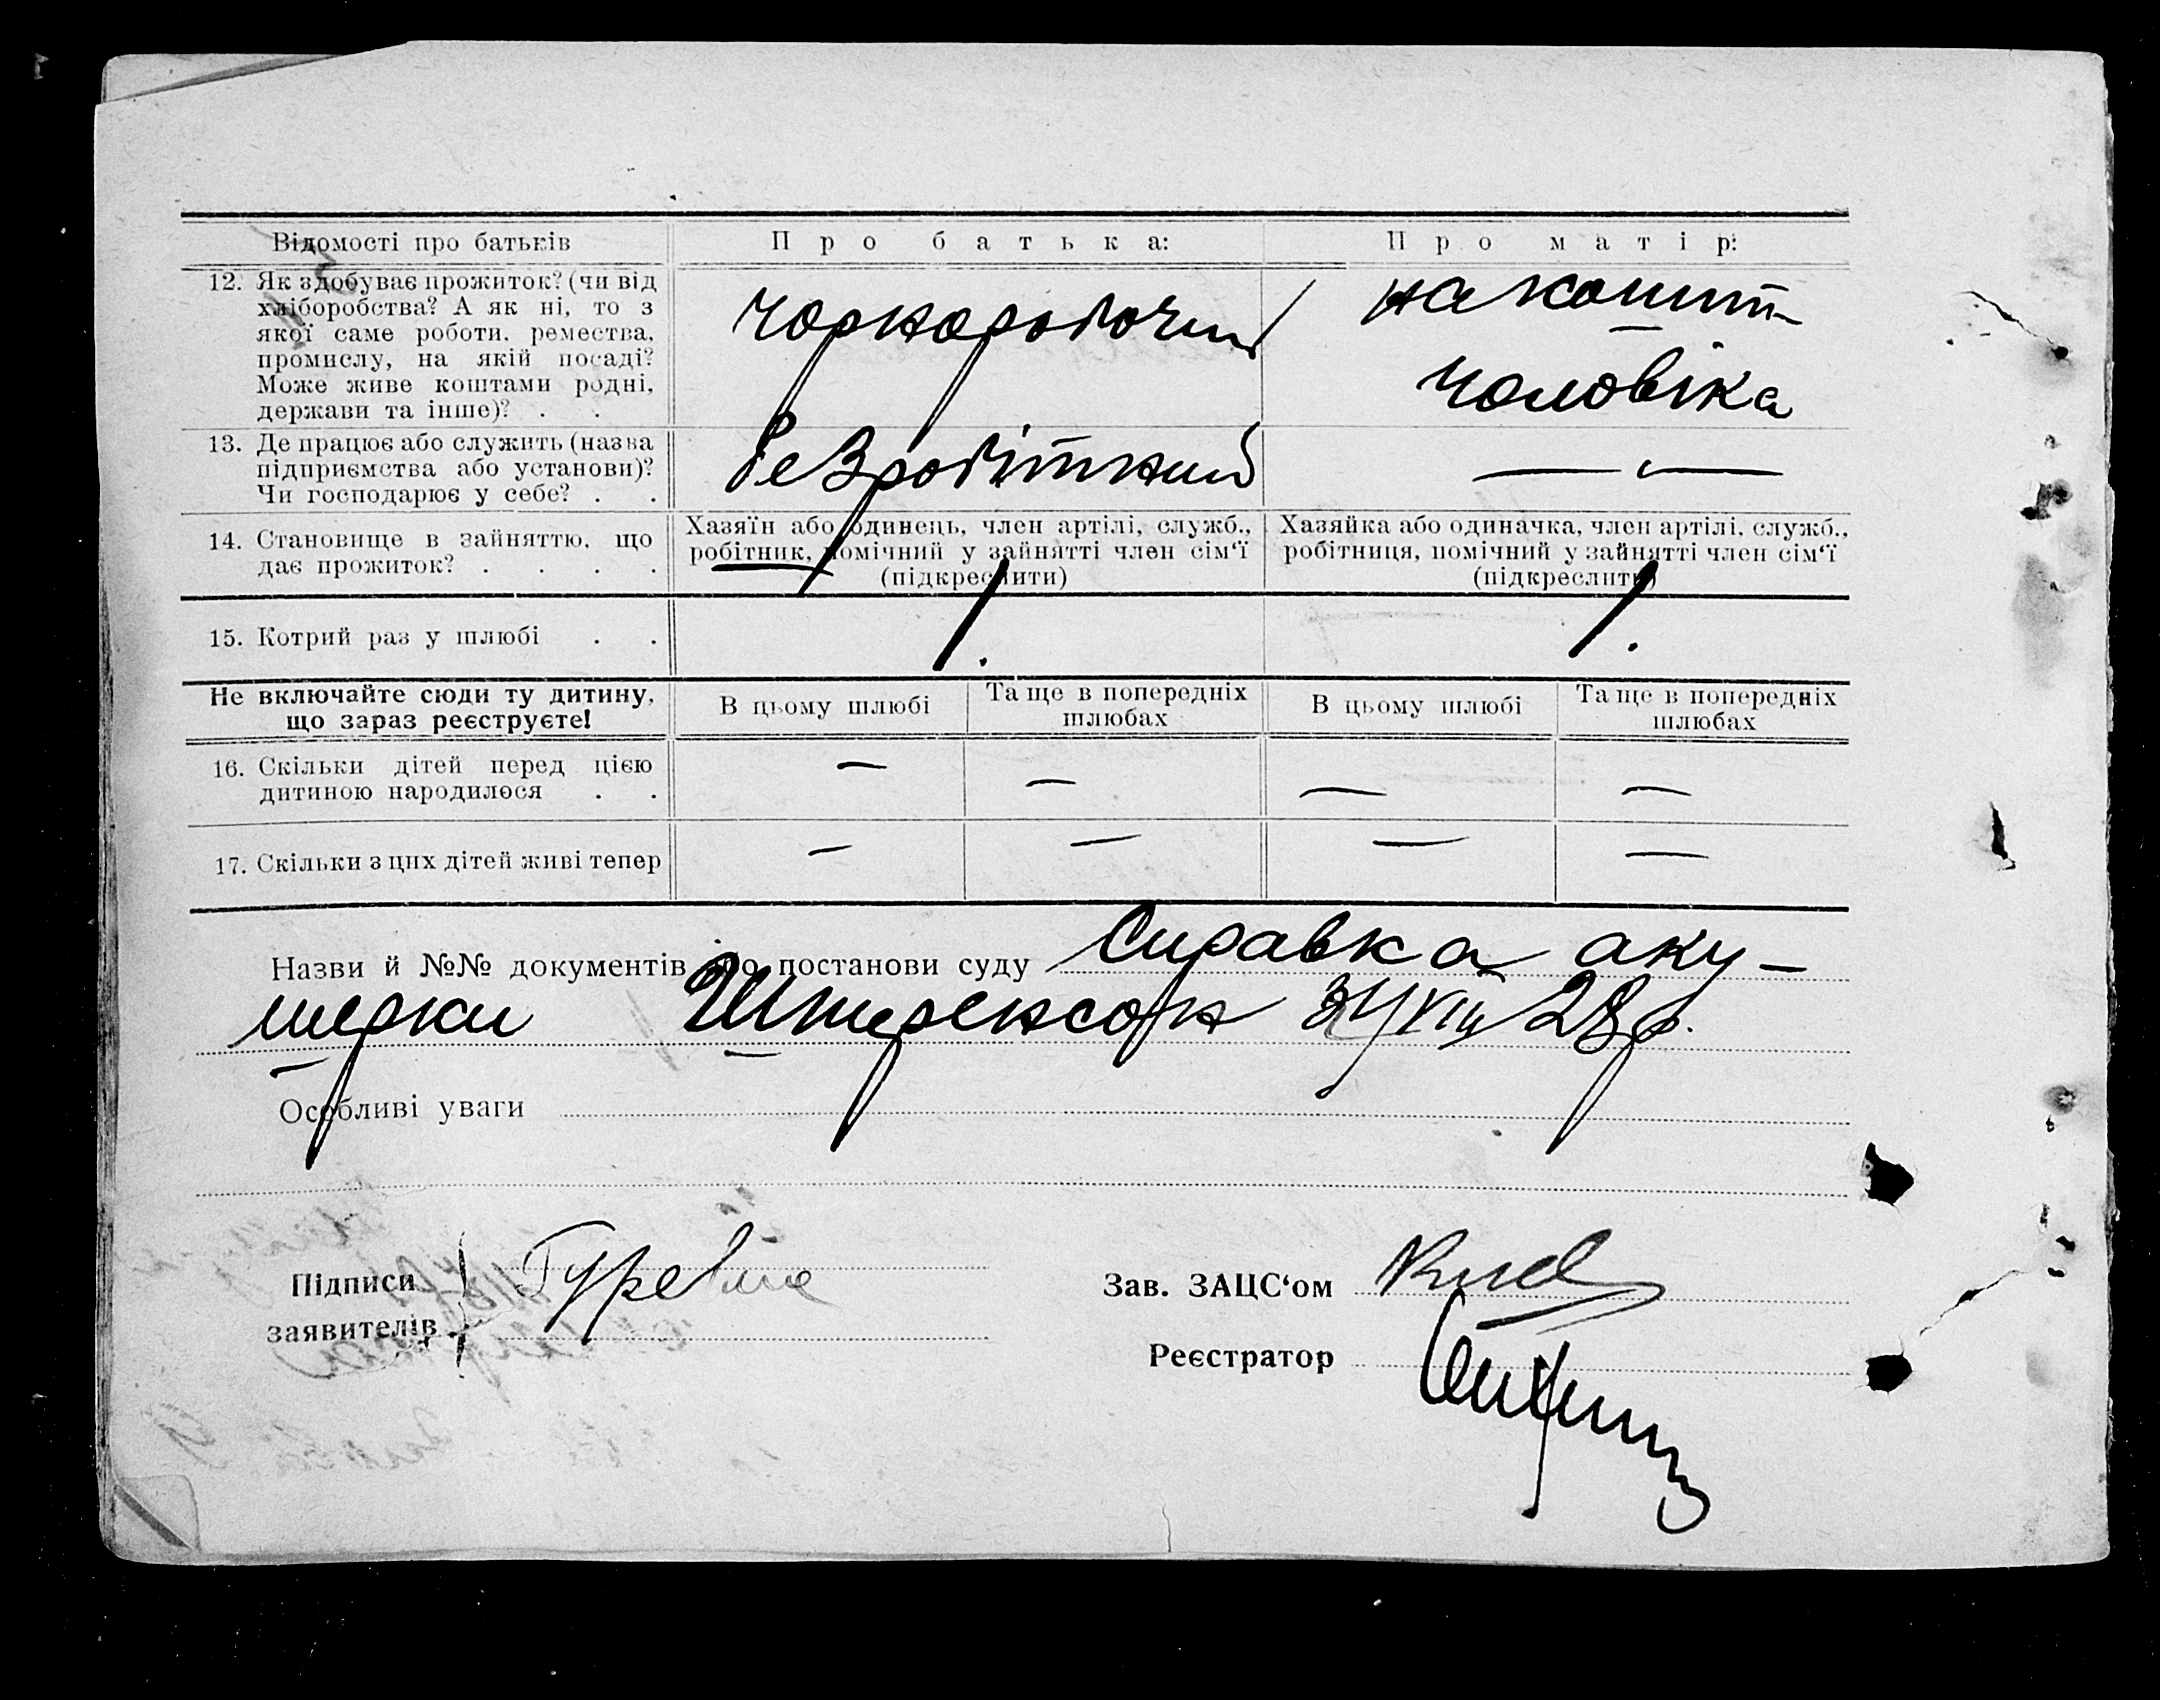 Відомості про батьків
Про батька:
Про матір:
12. Як здобуває прожиток? (чи від
хліборобства? А як ні, то з
якої саме роботи, ремества,
промислу, на якій посаді?
Може живе коштами родні,
держави та інше)? . .
чорноробочий
на кошт
чоловіка
13. Де працює або служить (назва
підприємства або установи)?
Чи господарює у себе? . .
безробітний
— „ —
14. Становище в зайняттю, що
дає прожиток? . . . .
Хазяїн або одинець, член артілі, служб.,
робітник, помічний у зайнятті член сім‘ї
(підкреслити)
Хазяйка або одиначка, член артілі, служб.,
робітниця, помічний у зайнятті член сім‘ї
(підкреслити)
15. Котрий раз у шлюбі . .
1.
1.
Не включайте сюди ту дитину,
що зараз реєструєте!
В цьому шлюбі
Та ще в попередніх
шлюбах
В цьому шлюбі
Та ще в попередніх
шлюбах
16. Скільки дітей перед цією
дитиною народилося . .
— — — —
17. Скільки з цих дітей живі тепер
— — — —
Назви й №№ документів про постанови суду Справка аку-
шерки 28 р.
Особливі уваги
Підписи
заявителів
Зав. ЗАЦС‘ом
Реєстратор